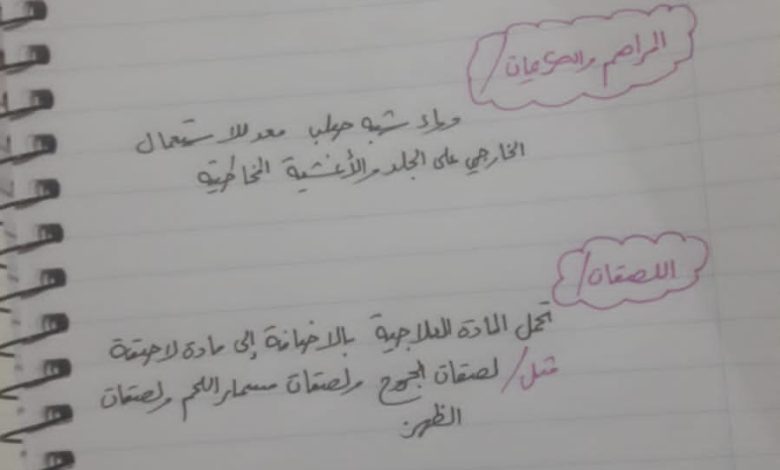 المراهم والكريمات/
دواء شبه صلب معد للاستعمال
الخارجي على الجلد والأغشية المخاطية
اللصقات/
تحمل المادة العلاجية بالاضافة إلى مادة لاصقة
مثل/ لصقات الجروح ولصقات مسمار اللحم ولصقات
الظهر